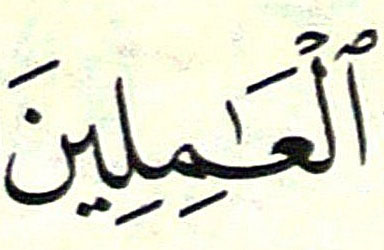 ٱلْعَـٰمِلِينَ